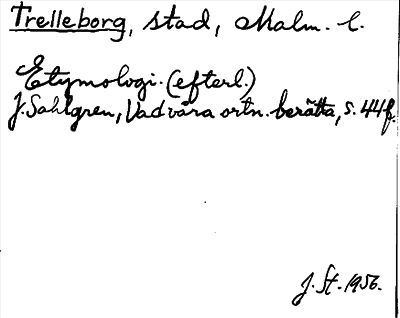 Trelleborg, stad, Malm. l.
Etymologi. (efterl.)
J. Sahlgren, Vad våra ortn. berätta, s. 44f.
J. St. 1956.